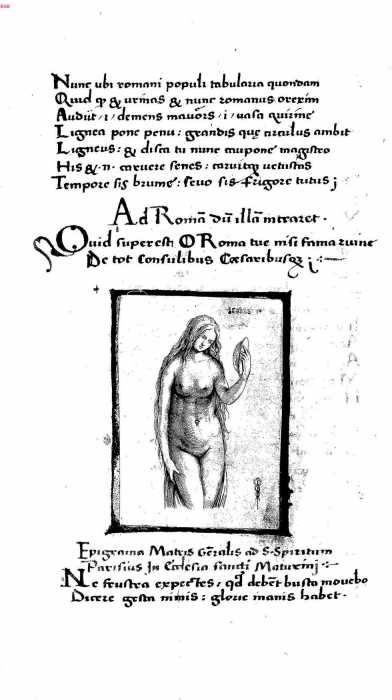 Nunc ubi romani populi tabularia quondam
Quid qꝫ & urinas & nunc romanus orexim
Audiit / i / demens mavors / i / vasa quirine
Lignea pone penu : grandis quę circulus ambit
Ligneus : & disca tu nunc caupone magistro
His & .n. caruere senes : caruitqꝫ uetustas
Tempore sis brume : seuo sis frigore tutus ;
Ad Romā dū illā intraret .
Quid superest O Roma tue nisi fama ruine
De tot Consulibus Cęsaribusqꝫ ;
Epigrama Matris Gēralis ad S. Spiritum
Parisius In Ecclesia sancti Maturini :
Ne frustra expectes, qd debēt busta mouebo
Dicere gesta nimis : glorię inanis habet .